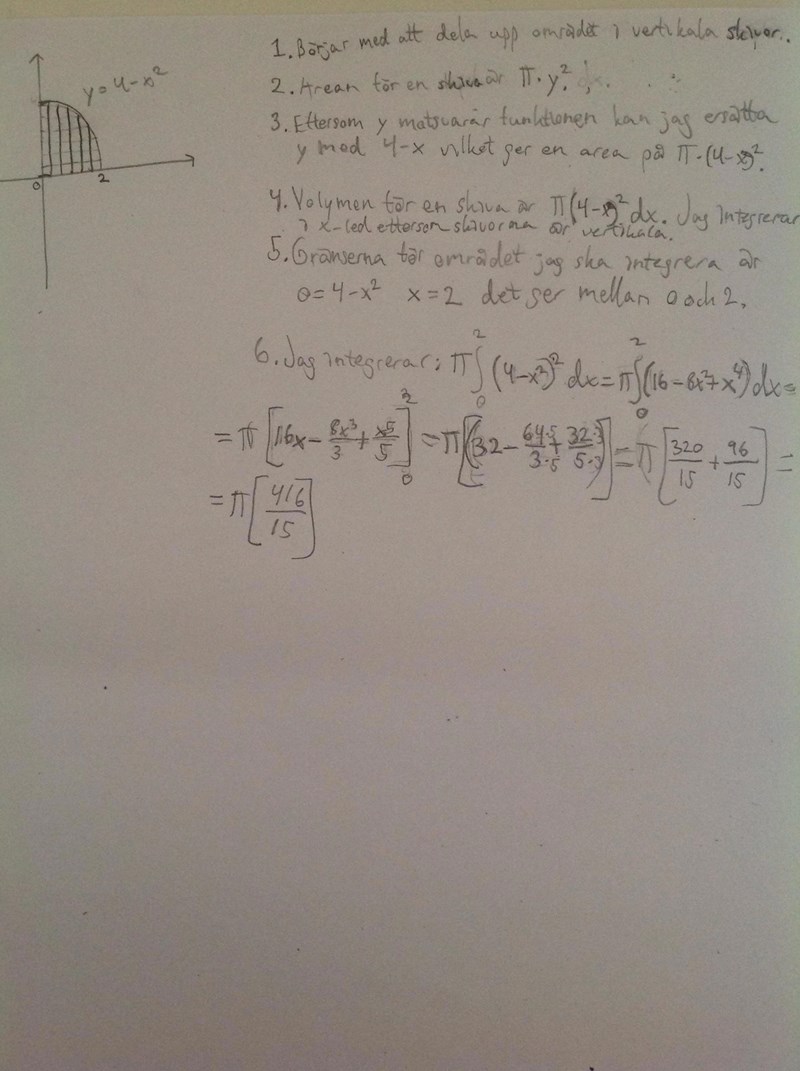 y=4-x²
0
2
1. Börjar med att dela upp området i vertikala skivor.
2. Arean för en skiva är π·y².
3. Eftersom y motsvarar funktionen kan jag ersätta
y med 4-x vilket ger en area på π·(4-x)².
4. Volymen för en skiva är π(4-x)² dx. Jag integrerar
i x-led eftersom skivorna är vertikala.
5. Gränserna för området jag ska integrera är
0=4-x² x=2 det ger mellan 0 och 2.
6. Jag integrerar: π∫₀² (4-x²)² dx = π∫₀² (16-8x²+x⁴) dx =
= π[16x - 8x³/3 + x⁵/5]₀² = π[(32 - 64·5/3·5 + 32·3/5·3)] = π[320/15 + 96/15] =
= π[416/15]